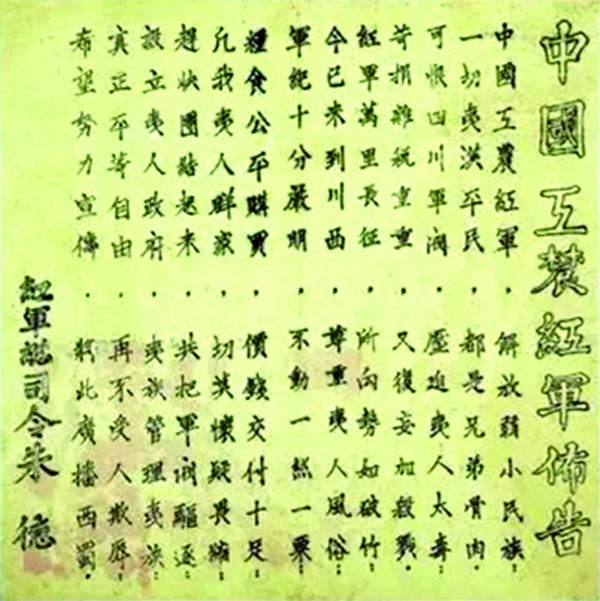 中國工農紅軍佈告
中國工農紅軍，解放弱小民族；
一切夷漢平民，都是兄弟骨肉。
可恨四川軍閥，壓迫夷人太毒；
苛捐雜稅重重，又復妄加殺戮。
紅軍萬里長征，所向勢如破竹；
今已來到川西，尊重夷人風俗。
軍紀十分嚴明，不動一絲一粟；
糧食公平購買，價錢交付十足。
凡我夷人群眾，切莫懷疑畏縮；
趕快團結起來，共把軍閥驅逐。
設立夷人政府，夷族管理夷族；
真正平等自由，再不受人欺辱；
希望努力宣傳，將此廣播西蜀。
紅軍總司令朱德